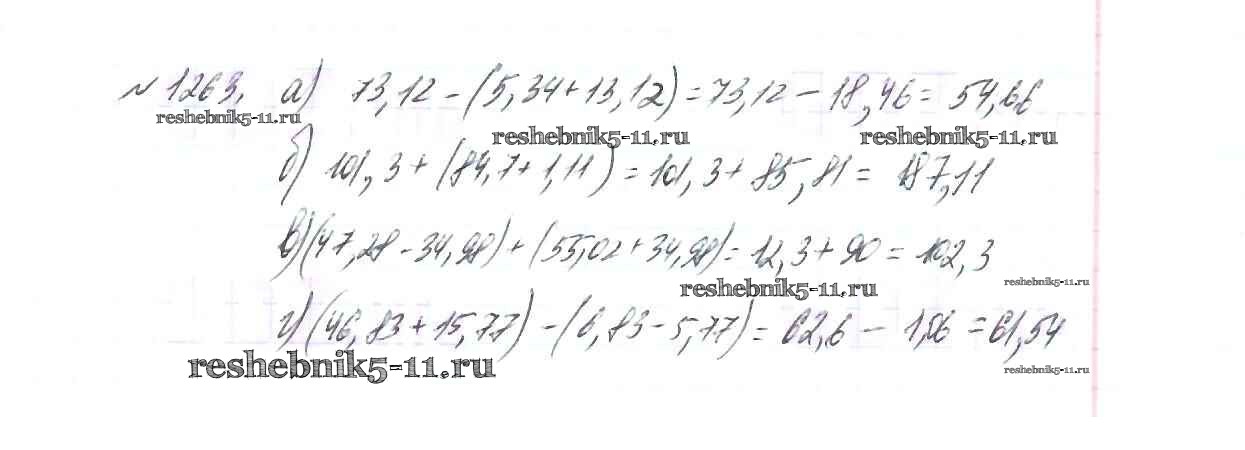 № 1263. а) 73,12 - (5,34 + 13,12) = 73,12 - 18,46 = 54,66
reshebnik5-11.ru reshebnik5-11.ru reshebnik5-11.ru
б) 101,3 + (84,7 + 1,11) = 101,3 + 85,81 = 187,11
в) (47,28 - 34,98) + (55,02 + 34,98) = 12,3 + 90 = 102,3
reshebnik5-11.ru reshebnik5-11.ru
г) (46,83 + 15,77) - (6,83 - 5,77) = 62,6 - 1,06 = 61,54
reshebnik5-11.ru reshebnik5-11.ru